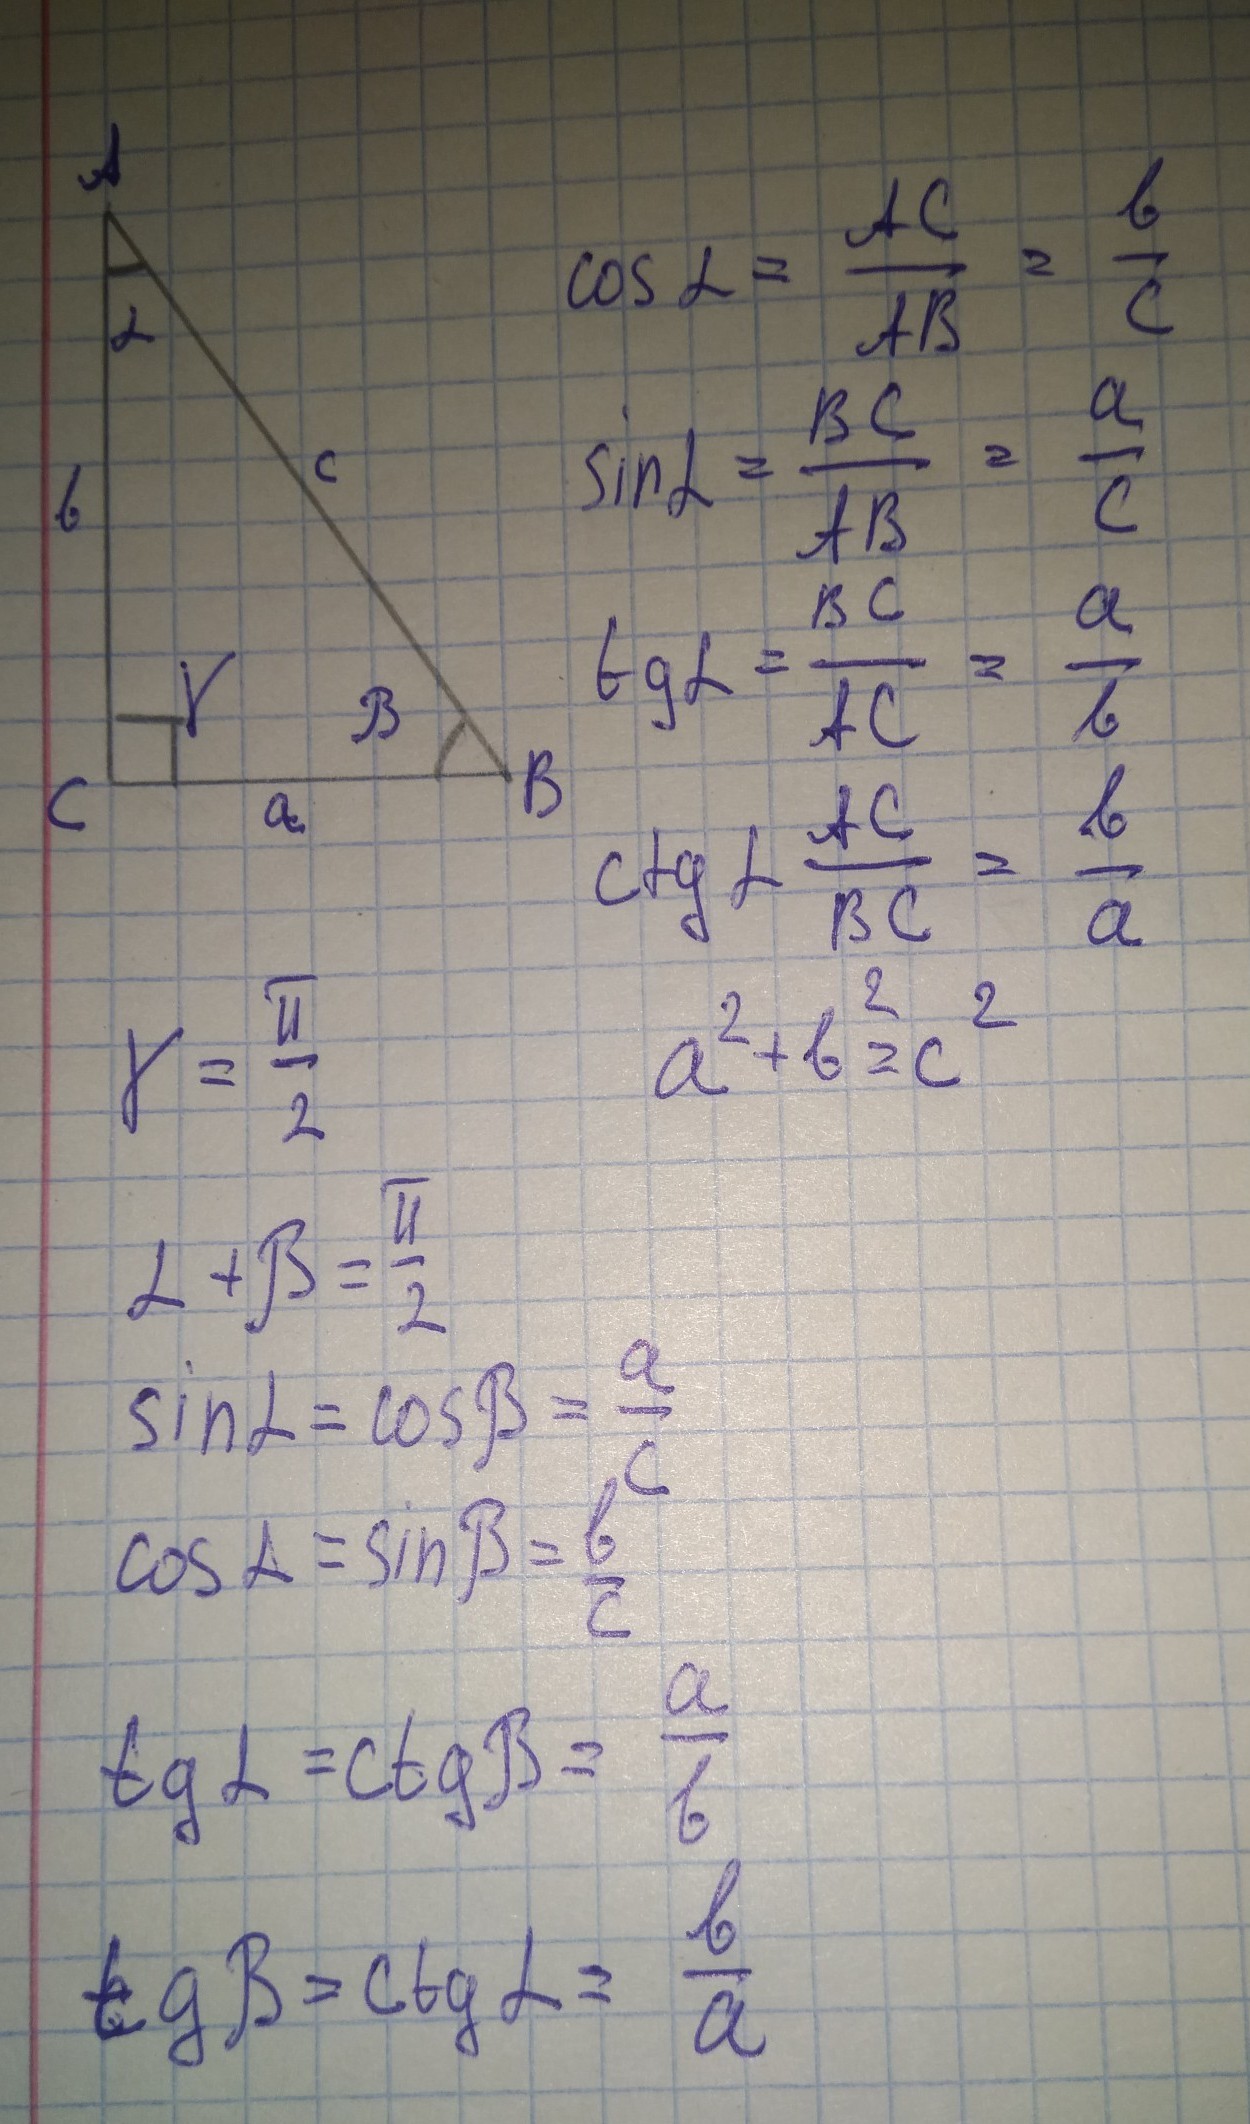 A
α
b
c
γ
β
C
a
B
cos α = AC/AB = b/c
sin α = BC/AB = a/c
tg α = BC/AC = a/b
ctg α AC/BC = b/a
a² + b² = c²
γ = π/2
α + β = π/2
sin α = cos β = a/c
cos α = sin β = b/c
tg α = ctg β = a/b
tg β = ctg α = b/a